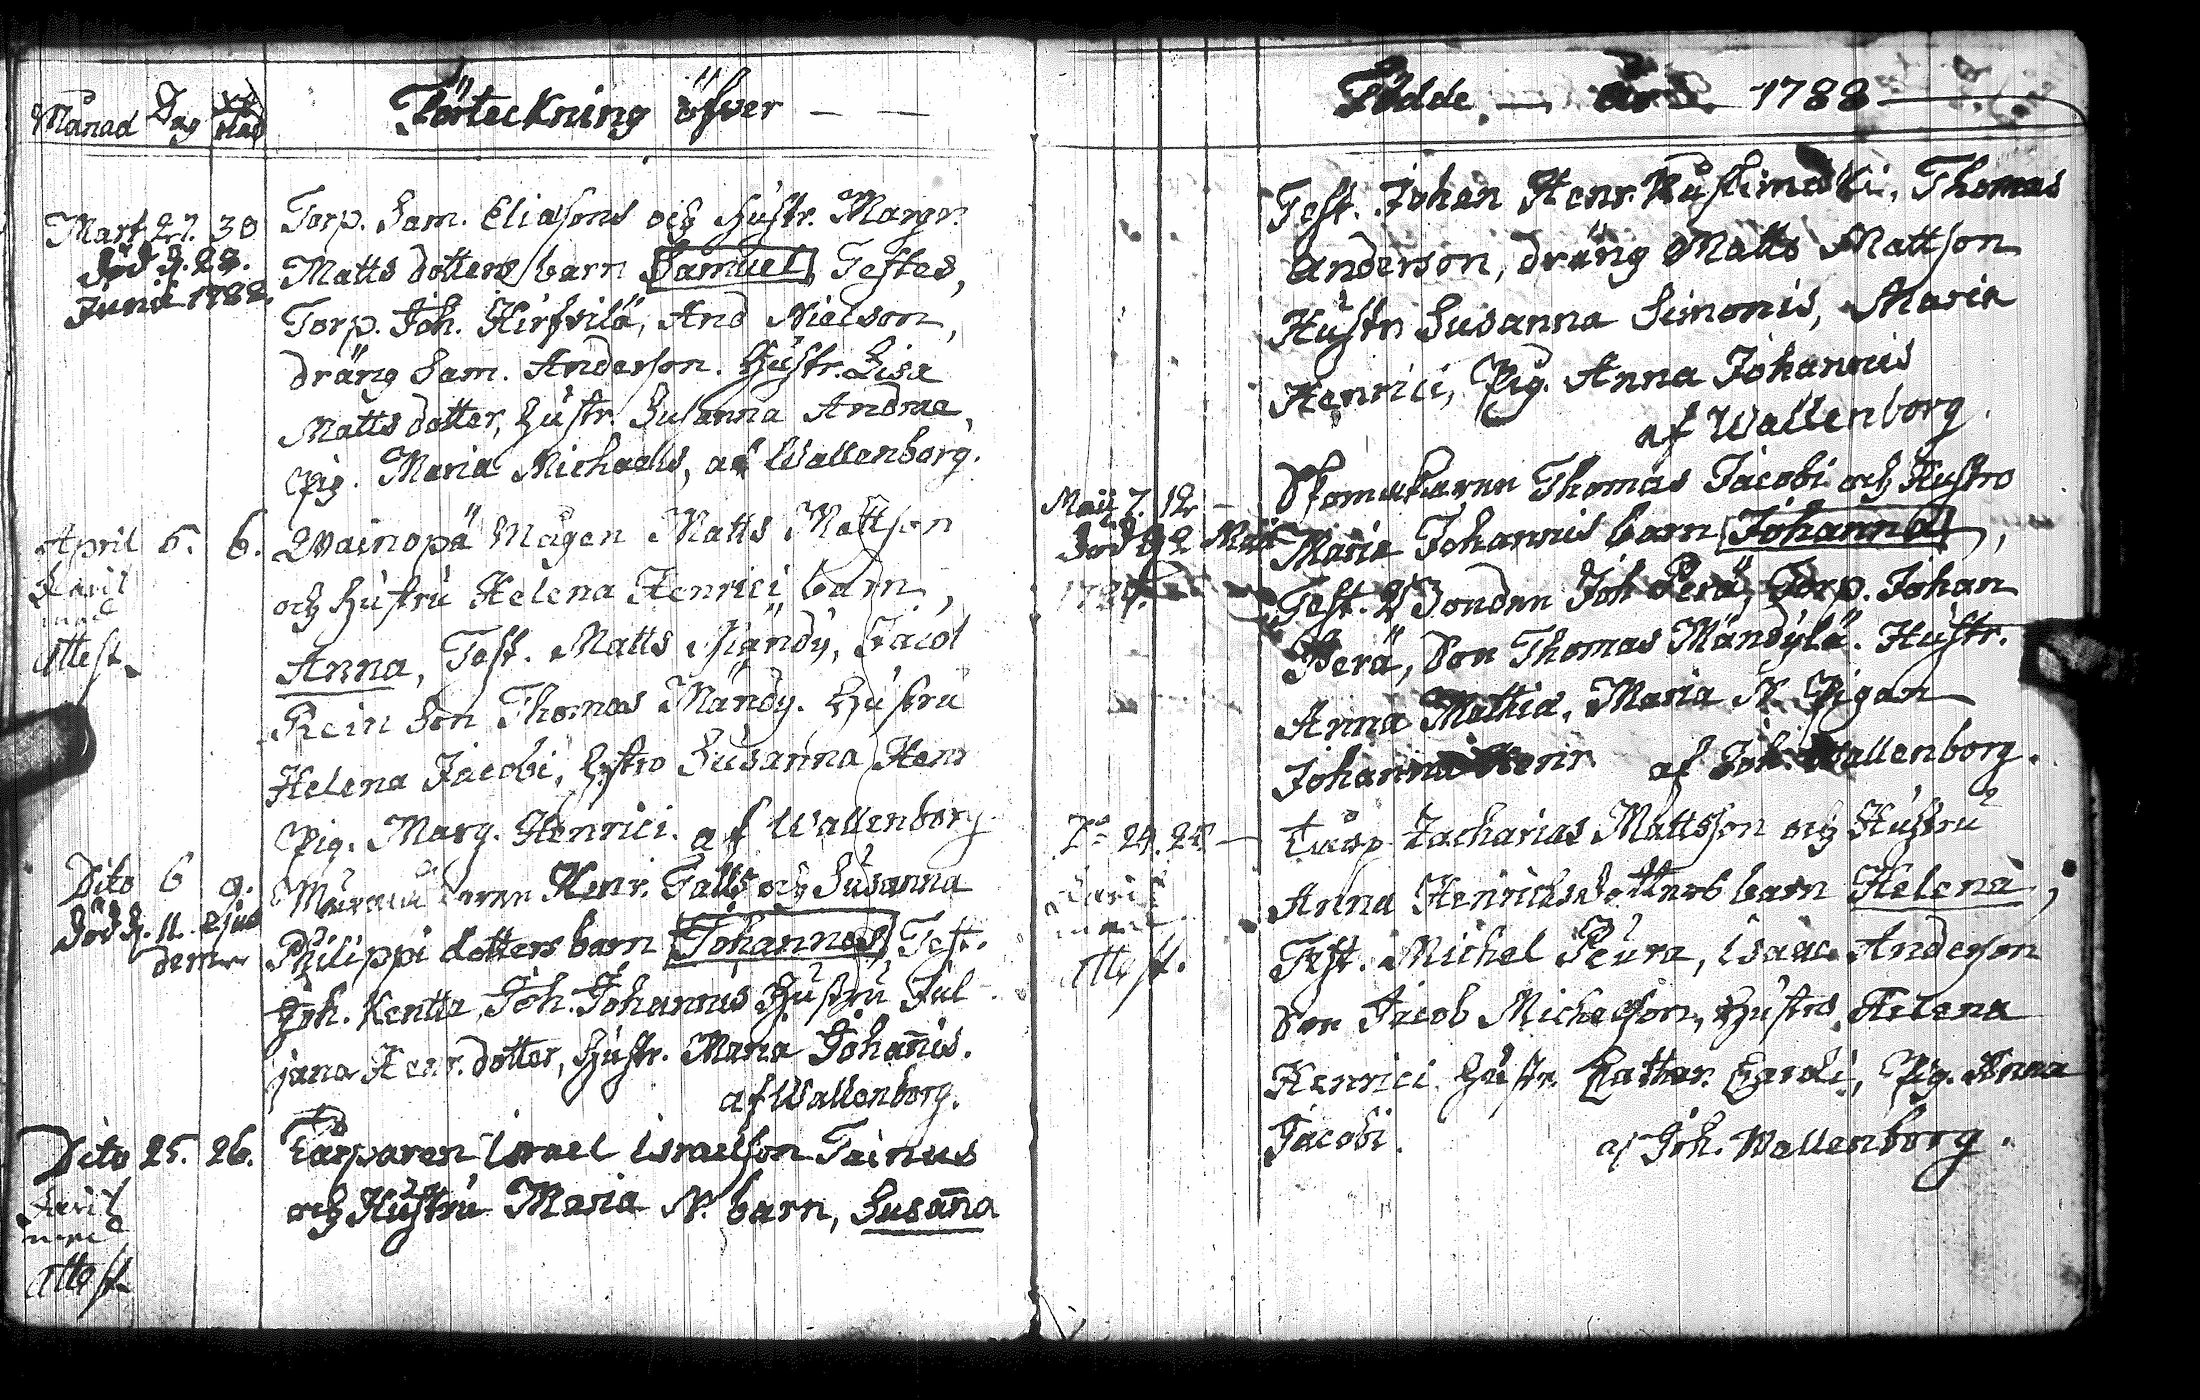 Månad Dag
Förteckning öfver — —
Mart 27. 30
död d. 28.
Junii 1788.
Torp. Sam. Eliasons och hustr. Margr.
Matts dotters barn Samuel Testes,
Torp. Joh. Hirfvilä, And Nielson,
dräng Sam. Anderson. Hustr. Lisa
Matts dotter, hustr. Susanna Andreæ,
Pig. Maria Michaelis, af Wallenborg.
April 5. 6.
attest.
Wainopä Mågen Matts Mattson
och hustru Helena Henrici barn,
Anna, Test. Matts Mändy, Jacob
Rein Son Thomas Mändy. Hustru
Helena Jacobi, hustro Susanna Henr
Pig. Marg. Henrici. af Wallenborg
Dito 6 9.
död d. 11. ejus
dem
Henr. Falls och Susanna
Philippi dotters barn Johannes, Test.
Joh. Kentta, Joh. Johannis Hustru Jul
jana Henr. dotter, hustr. Maria Johan̄is.
af Wallenborg.
Dito 25. 26.
attest
Torparen Israel Israelson Tainus
och Hustru Maria N. barn, Susan̄a
Födde — 1788 —
Test. Johan Henr. Thomas
Anderson, dräng Matts Mattson
Hustr. Susanna Simonis, Maria
Henrici, Pig. Anna Johannis
af Wallenborg.
Maii 7. 12 —
död d 2 Maii
Skomakaren Thomas Jacobi och Hustro
Maria Johannis barn Johanna,
Test. Bonden Joh Perä, Torp. Johan
Perä, Son Thomas Mändylä. Hustr.
Anna Mathiæ, Maria N. Pigan
Johanna Henr. af Joh. Wallenborg.
Do 24. 25 —
attest.
Zacharias Mattsson och Hustru
Anna Henrichsdotters barn Helena,
Test. Michel Peura, Isaac Anderson
Son Jacob Michelson, Hustro Helena
Henrici. hustr. Cathar. Caroli, Pig. Anna
Jacobi. af Joh. Wallenborg.